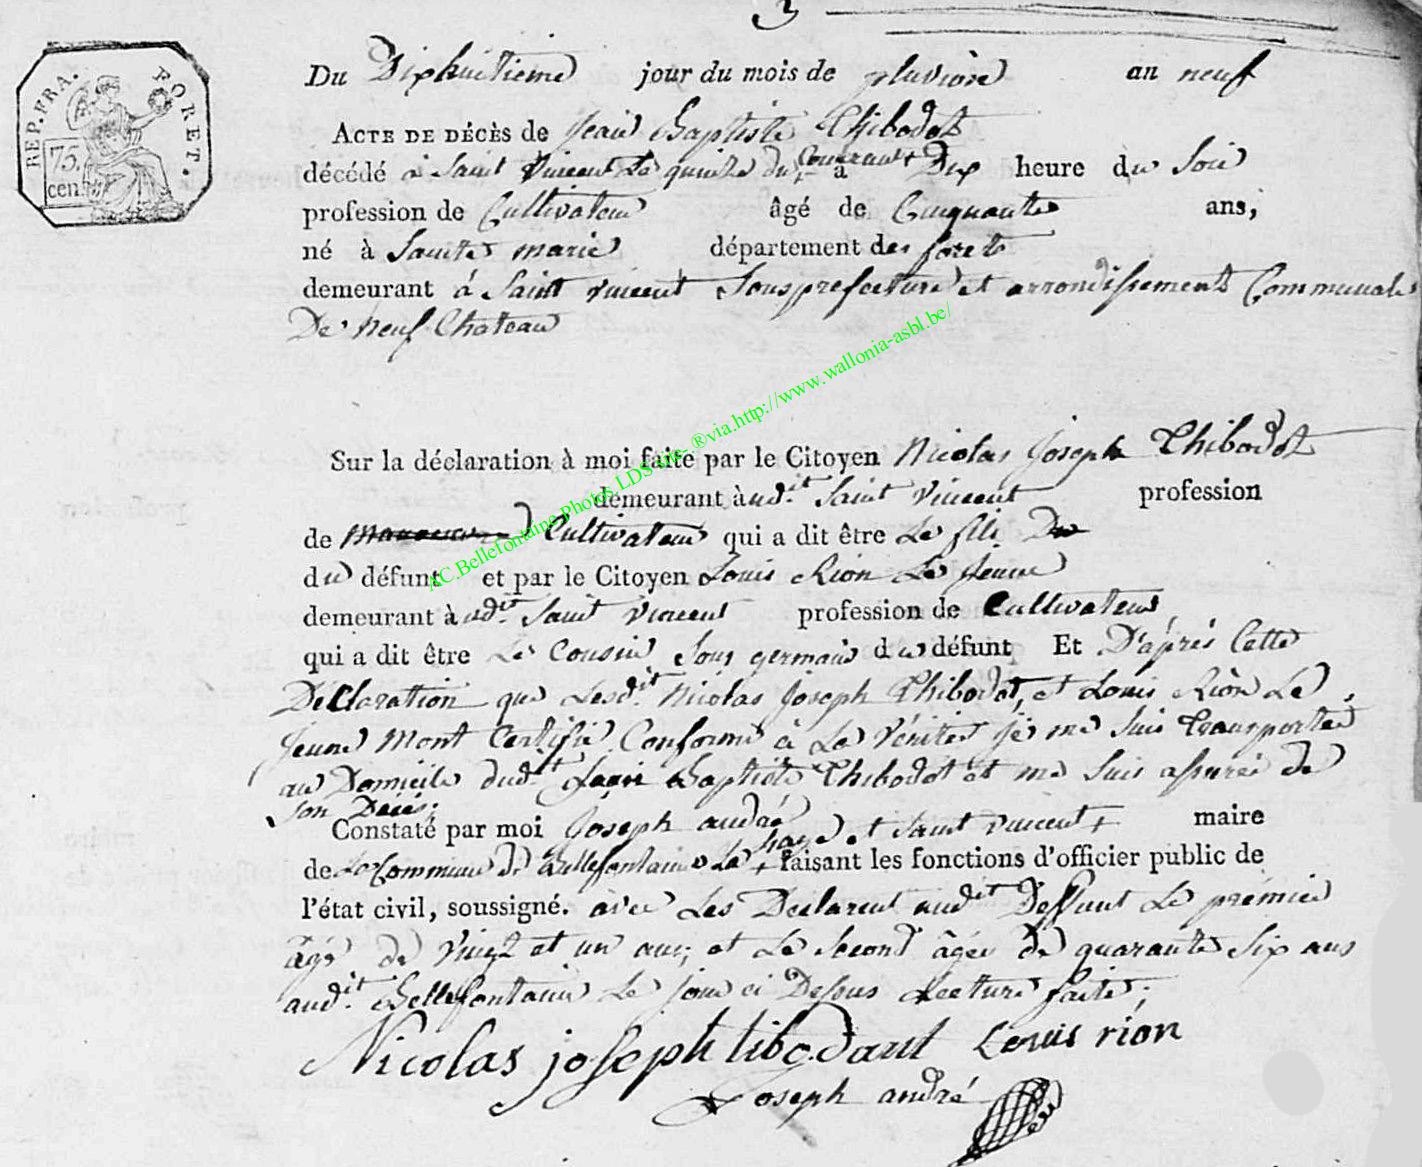 3
REP. FRA. FORET.
75.
cen.
Du Dixhuitieme jour du mois de pluviôse an neuf
ACTE DE DÉCÈS de Jean Baptiste Thibodot
décédé à Saint Vincent Le quinze du, Courant + à Dix heure du Soir
profession de Cultivateur âgé de Cinquante ans,
né à Sainte marie département des forets
demeurant à Saint vincent Sousprefecture et arrondissement Communale
De Neuf Chateau
Sur la déclaration à moi faite par le Citoyen Nicolas Joseph Thibodot
demeurant à aud.it Saint Vincent profession
de Cultivateur qui a dit être Le fils Du
du défunt et par le Citoyen Louis Rion Le Jeune
demeurant à ud.it Saint Vincent profession de Cultivateur
qui a dit être Le Cousin Sous germain du défunt Et D'après Cette
Declaration que Lesd.it Nicolas Joseph Thibodot, et Louis Rion Le
Jeune Mont Certifié Conforme à La Vérité je me suis Transporté
au Domicile dud.t Jean Baptiste Thibodot et me suis assuré de
Son Decés;
Constaté par moi Joseph andré maire
de La Commune de Bellefontaine La + haye et Saint Vincent + faisant les fonctions d'officier public de
l'état civil, soussigné. avec Les Declarent aud.it Deffunt Le premier
âgé de Vingt et un ans; et Le Second âgée de quarante Six ans
aud.it Bellefontaine Le jour ci Dessus Lecture faite;
Nicolas joseph tibodaut Louis rion
Joseph andré
AC.Bellefontaine Photos LDS ®via.http://www.wallonia-asbl.be/